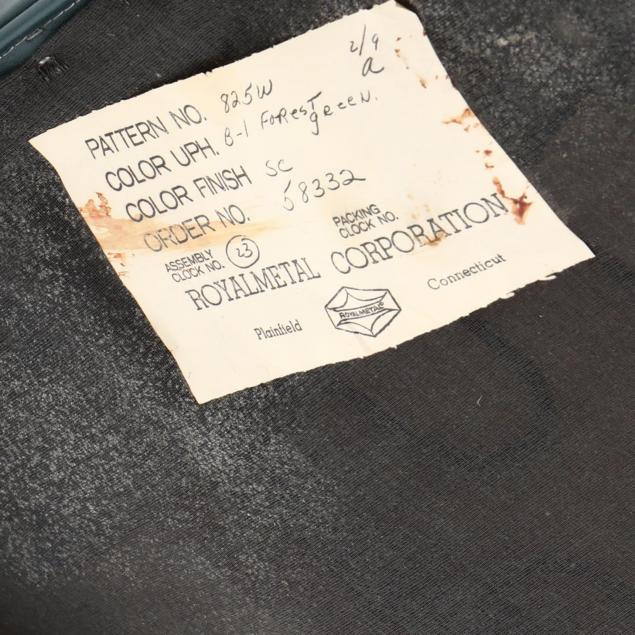 2/9
a
PATTERN NO. 825W
COLOR UPH. B-1 FOREST green.
COLOR FINISH SC
ORDER NO. 58332
ASSEMBLY CLOCK NO. 23
PACKING CLOCK NO.
ROYALMETAL CORPORATION
Plainfield ROYALMETAL Connecticut